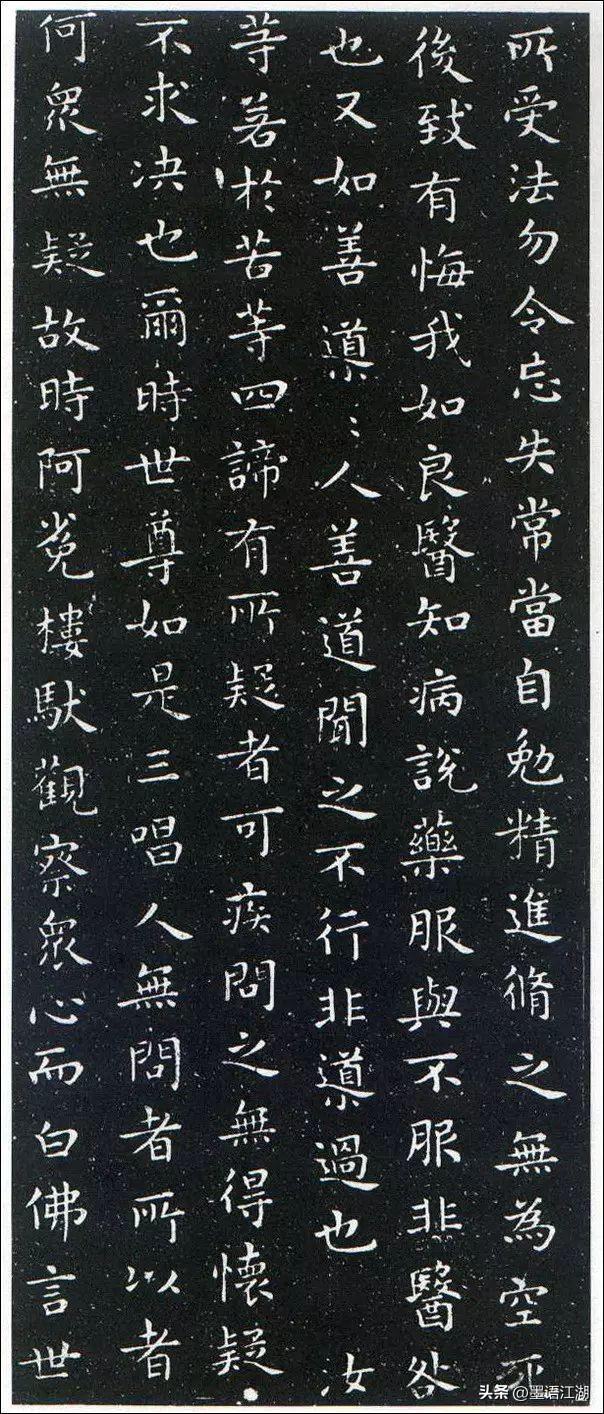 所受法勿令忘失常當自勉精進脩之無為空死
後致有悔我如良醫知病說藥服與不服非醫咎
也又如善導〻人善道聞之不行非導過也 汝
等若於苦等四諦有所疑者可疾問之無得懷疑
不求决也爾時世尊如是三唱人無問者所以者
何眾無疑故時阿㝹樓馱觀察眾心而白佛言世
头条 @墨语江湖